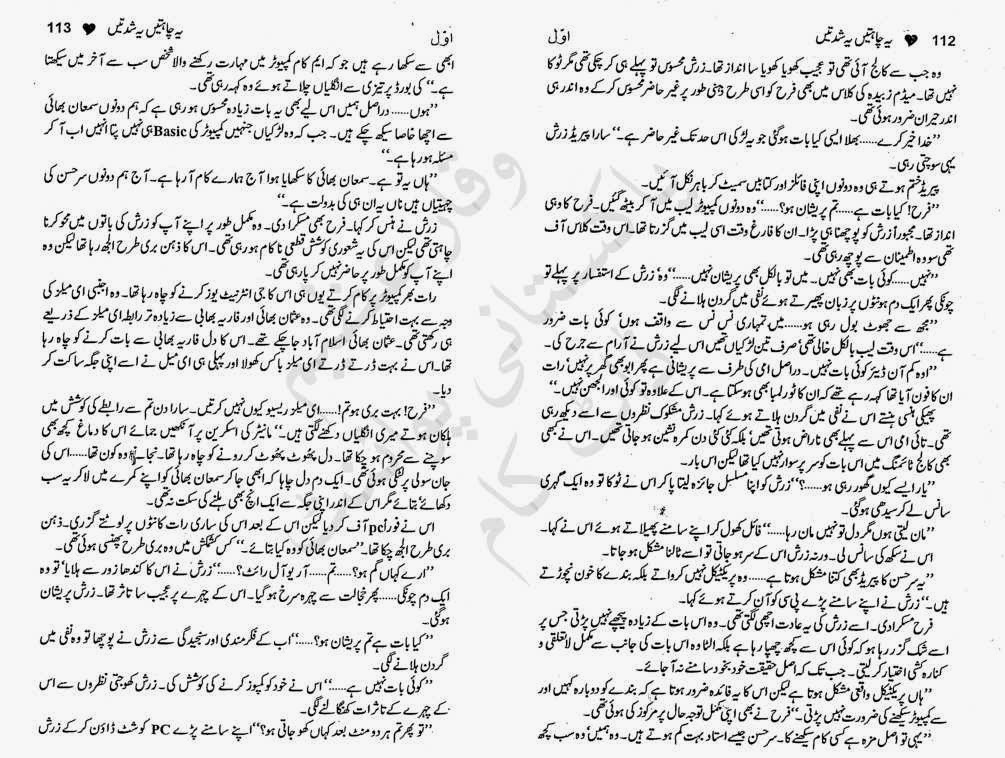 112 ♥ یہ چاہتیں یہ شدتیں اوّل
وہ جب سے کالج آئی تھی تو عجیب کھویا کھویا سا انداز تھا۔ زرش محسوس تو پہلے ہی کر چکی تھی مگر ٹوکا
نہیں تھا۔ میڈم زبیدہ کی کلاس میں بھی فرح کو اسی طرح ذہنی طور پر غیر حاضر محسوس کر کے وہ اندر ہی
اندر حیران ضرور ہوئی تھی۔
’’خدا خیر کرے......بھلا ایسی کیا بات ہوگئی جو یہ لڑکی اس حد تک غیر حاضر ہے۔‘‘ سارا پیریڈ زرش
یہی سوچتی رہی۔
پیریڈ ختم ہوتے ہی وہ دونوں اپنی فائلز اور کتابیں سمیٹ کر باہر نکل آئیں۔
’’فرح! کیا بات ہے......تم پریشان ہو؟......‘‘ وہ دونوں کمپیوٹر لیب میں آ کر بیٹھ گئیں۔ فرح کا وہی
انداز تھا۔ مجبوراً زرش کو پوچھنا ہی پڑا۔ ان کا فارغ وقت اسی لیب میں گزرتا تھا۔ اس وقت کلاس آف
تھی سو وہ اطمینان سے پوچھ رہی تھی۔
’’نہیں......کوئی بات بھی نہیں۔ میں تو بالکل بھی پریشان نہیں......‘‘ وہ زرش کے استفسار پر پہلے تو
چونکی پھر ایک دم ہونٹوں پر زبان پھیرتے ہوئے نفی میں گردن ہلانے لگی۔
’’مجھ سے جھوٹ بول رہی ہو......میں تمہاری نس نس سے واقف ہوں‘ کوئی بات ضرور
ہے......‘‘ اس وقت لیب بالکل خالی تھی‘ صرف تین لڑکیاں تھیں اس لیے زرش نے آرام سے جرح کی۔
’’اوہ کم آن ڈیئر کوئی بات نہیں۔ دراصل امی کی طرف سے پریشانی ہے پھر ابو بھی گھر پر نہیں‘ رات
ان کا فون آیا تھا کہہ رہے تھے کہ ان کا ٹور لمبا بھی ہوسکتا ہے۔ اس کے علاوہ تو کوئی اور الجھن نہیں۔‘‘
پھیکی ہنسی ہنستے اس نے نفی میں گردن ہلاتے ہوئے کہا۔ زرش مشکوک نظروں سے اسے دیکھ رہی
تھی۔ تائی امی اس سے پہلے بھی ناراض ہوتی تھیں‘ بلکہ کئی کئی دن کمرہ نشین ہو جاتی تھیں۔ اس نے کبھی
بھی کالج ٹائمنگ میں اس بات کو سر پر سوار نہیں کیا تھا لیکن اس بار۔
’’یار ایسے کیوں گھور رہی ہو......؟‘‘ زرش کو اپنا مسلسل جائزہ لیتا پا کر اس نے ٹوکا تو وہ ایک گہری
سانس لے کر سیدھی ہوگئی۔
’’مان لیتی ہوں مگر دل تو نہیں مان رہا......‘‘ فائل کھول کر اپنے سامنے پھیلاتے ہوئے اس نے کہا۔
اس نے سکھ کی سانس لی۔ ورنہ زرش اس کے سر ہو جاتی تو اسے ٹالنا مشکل ہو جاتا۔
’’یہ سر حسن کا پیریڈ بھی کتنا مشکل ہوتا ہے......وہ پریکٹیکل نہیں کرواتے بلکہ بندے کا خون نچوڑتے
ہیں۔‘‘ زرش نے اپنے سامنے پڑے پی سی کو آن کرتے ہوئے کہا۔
فرح مسکرا دی۔ اسے زرش کی یہ عادت اچھی لگتی تھی۔ وہ اس بات کے زیادہ پیچھے نہیں پڑتی جس پر
اسے شک گزر رہا ہو کہ کوئی اس سے کچھ چھپا رہا ہے بلکہ الٹا وہ اس بات کی جانب سے مکمل لاتعلقی و
کنارہ کشی اختیار کر لیتی۔ جب تک کہ اصل حقیقت خود بخود سامنے نہ آ جائے۔
’’ہاں پریکٹیکل واقعی مشکل ہوتا ہے لیکن اس کا یہ فائدہ ضرور ہوتا ہے کہ بندے کو دوبارہ کہیں اور
سے کمپیوٹر سیکھنے کی ضرورت نہیں پڑتی۔‘‘ فرح نے بھی اپنی مکمل توجہ حال پر مرکوز کی ہوئی تھی۔
’’یہی تو اصل مزہ ہے کسی کام سیکھنے کا۔ سر حسن جیسے استاد بہت کم ہوتے ہیں۔ وہ ہمیں‘ وہ سب کچھ
اوّل یہ چاہتیں یہ شدتیں ♥ 113
ابھی سے سکھا رہے ہیں جو کہ ایم کام کمپیوٹر میں مہارت رکھنے والا شخص سب سے آخر میں سیکھتا
ہے۔‘‘ کی بورڈ پر تیزی سے انگلیاں چلاتے ہوئے وہ کہہ رہی تھی۔
’’ہوں......دراصل ہمیں اس لیے بھی یہ بات زیادہ محسوس ہو رہی ہے کہ ہم دونوں سمعان بھائی
سے اچھا خاصا سیکھ چکے ہیں۔ جب کہ وہ لڑکیاں جنہیں کمپیوٹر کی Basic ہی نہیں پتا انہیں اب آ کر
مسئلہ ہو رہا ہے۔‘‘
’’ہاں یہ تو ہے۔ سمعان بھائی کا سکھایا ہوا آج ہمارے کام آ رہا ہے۔ آج ہم دونوں سر حسن کی
چہیتیاں ہیں ناں یہ ان ہی کی بدولت ہے۔‘‘
زرش نے ہنس کر کہا۔ فرح بھی مسکرا دی۔ وہ مکمل طور پر اپنے آپ کو زرش کی باتوں میں محو کرنا
چاہتی تھی لیکن اس کی یہ شعوری کوشش قطعی ناکام ہو رہی تھی۔ اس کا ذہن بری طرح الجھ رہا تھا لیکن وہ
اپنے آپ کو مکمل طور پر حاضر نہیں کر پا رہی تھی۔
رات بھر کمپیوٹر پر کام کرتے یوں ہی اس کا جی انٹرنیٹ یوز کرنے کو چاہ رہا تھا۔ وہ اجنبی ای میلز کی
وجہ سے بہت احتیاط کرنے لگی تھی۔ وہ عثمان بھائی اور فاریہ بھابی سے زیادہ تر رابطہ ای میلز کے ذریعے
ہی رکھتی تھی۔ عثمان بھائی اسلام آباد جا چکے تھے۔ اس کا دل فاریہ بھابی سے بات کرنے کو چاہ رہا
تھا۔ اس نے بہت ڈرتے ڈرتے ای میلز باکس کھولا اور پہلی ہی ای میل نے اسے اپنی جگہ ساکت کر
دیا۔
’’فرح! بہت بری ہو تم!......ای میلز ریسیو کیوں نہیں کرتیں۔ سارا دن تم سے رابطے کی کوشش میں
ہلکان ہوتے میری انگلیاں دکھنے لگتی ہیں۔‘‘ مانیٹر کی اسکرین پر آنکھیں جمائے اس کا دماغ کچھ بھی
سوچنے سے محروم ہو چکا تھا۔ دل پھوٹ پھوٹ کر رونے کو چاہ رہا تھا۔ نجانے وہ کون تھا......اس کی
جان سولی پر لٹکی ہوئی تھی۔ ایک دم دل چاہا کہ ابھی جا کر سمعان بھائی کو اپنے کمرے میں لا کر یہ سب
دکھائے‘ بتائے مگر اس کے اندر اپنی جگہ سے ایک انچ بھی ہلنے کی سکت نہ تھی۔
اس نے فوراً pc آف کر دیا لیکن اس کے بعد اس کی ساری رات کانٹوں پر لوٹتے گزری۔ ذہن
بری طرح الجھ چکا تھا۔ ’’سمعان بھائی کو وہ کیا بتائے۔‘‘ کس کشمکش میں وہ بری طرح پھنسی ہوئی تھی۔
’’ارے کہاں گم ہو؟......تم......آر یو آل رائٹ؟......‘‘ زرش نے اس کا کندھا زور سے ہلایا‘ تو وہ
ایک دم چونکی......پھر خجالت سے چہرہ سرخ ہو گیا۔ اس کے چہرے پر عجیب سا تاثر تھا۔ زرش پریشان
ہوگئی۔
’’کیا بات ہے تم پریشان ہو؟......‘‘ اب کے فکر مندی اور سنجیدگی سے زرش نے پوچھا تو وہ نفی میں
گردن ہلانے لگی۔
’’کوئی بات نہیں ہے......‘‘ اس نے خود کو کمپوز کرنے کی کوشش کی۔ زرش کھوجتی نظروں سے اس
کے چہرے کے تاثرات کھنگالنے لگی۔
’’تو پھر تم ہر دو منٹ بعد کہاں کھو جاتی ہو؟‘‘ اپنے سامنے پڑے PC کو شٹ ڈاؤن کر کے زرش